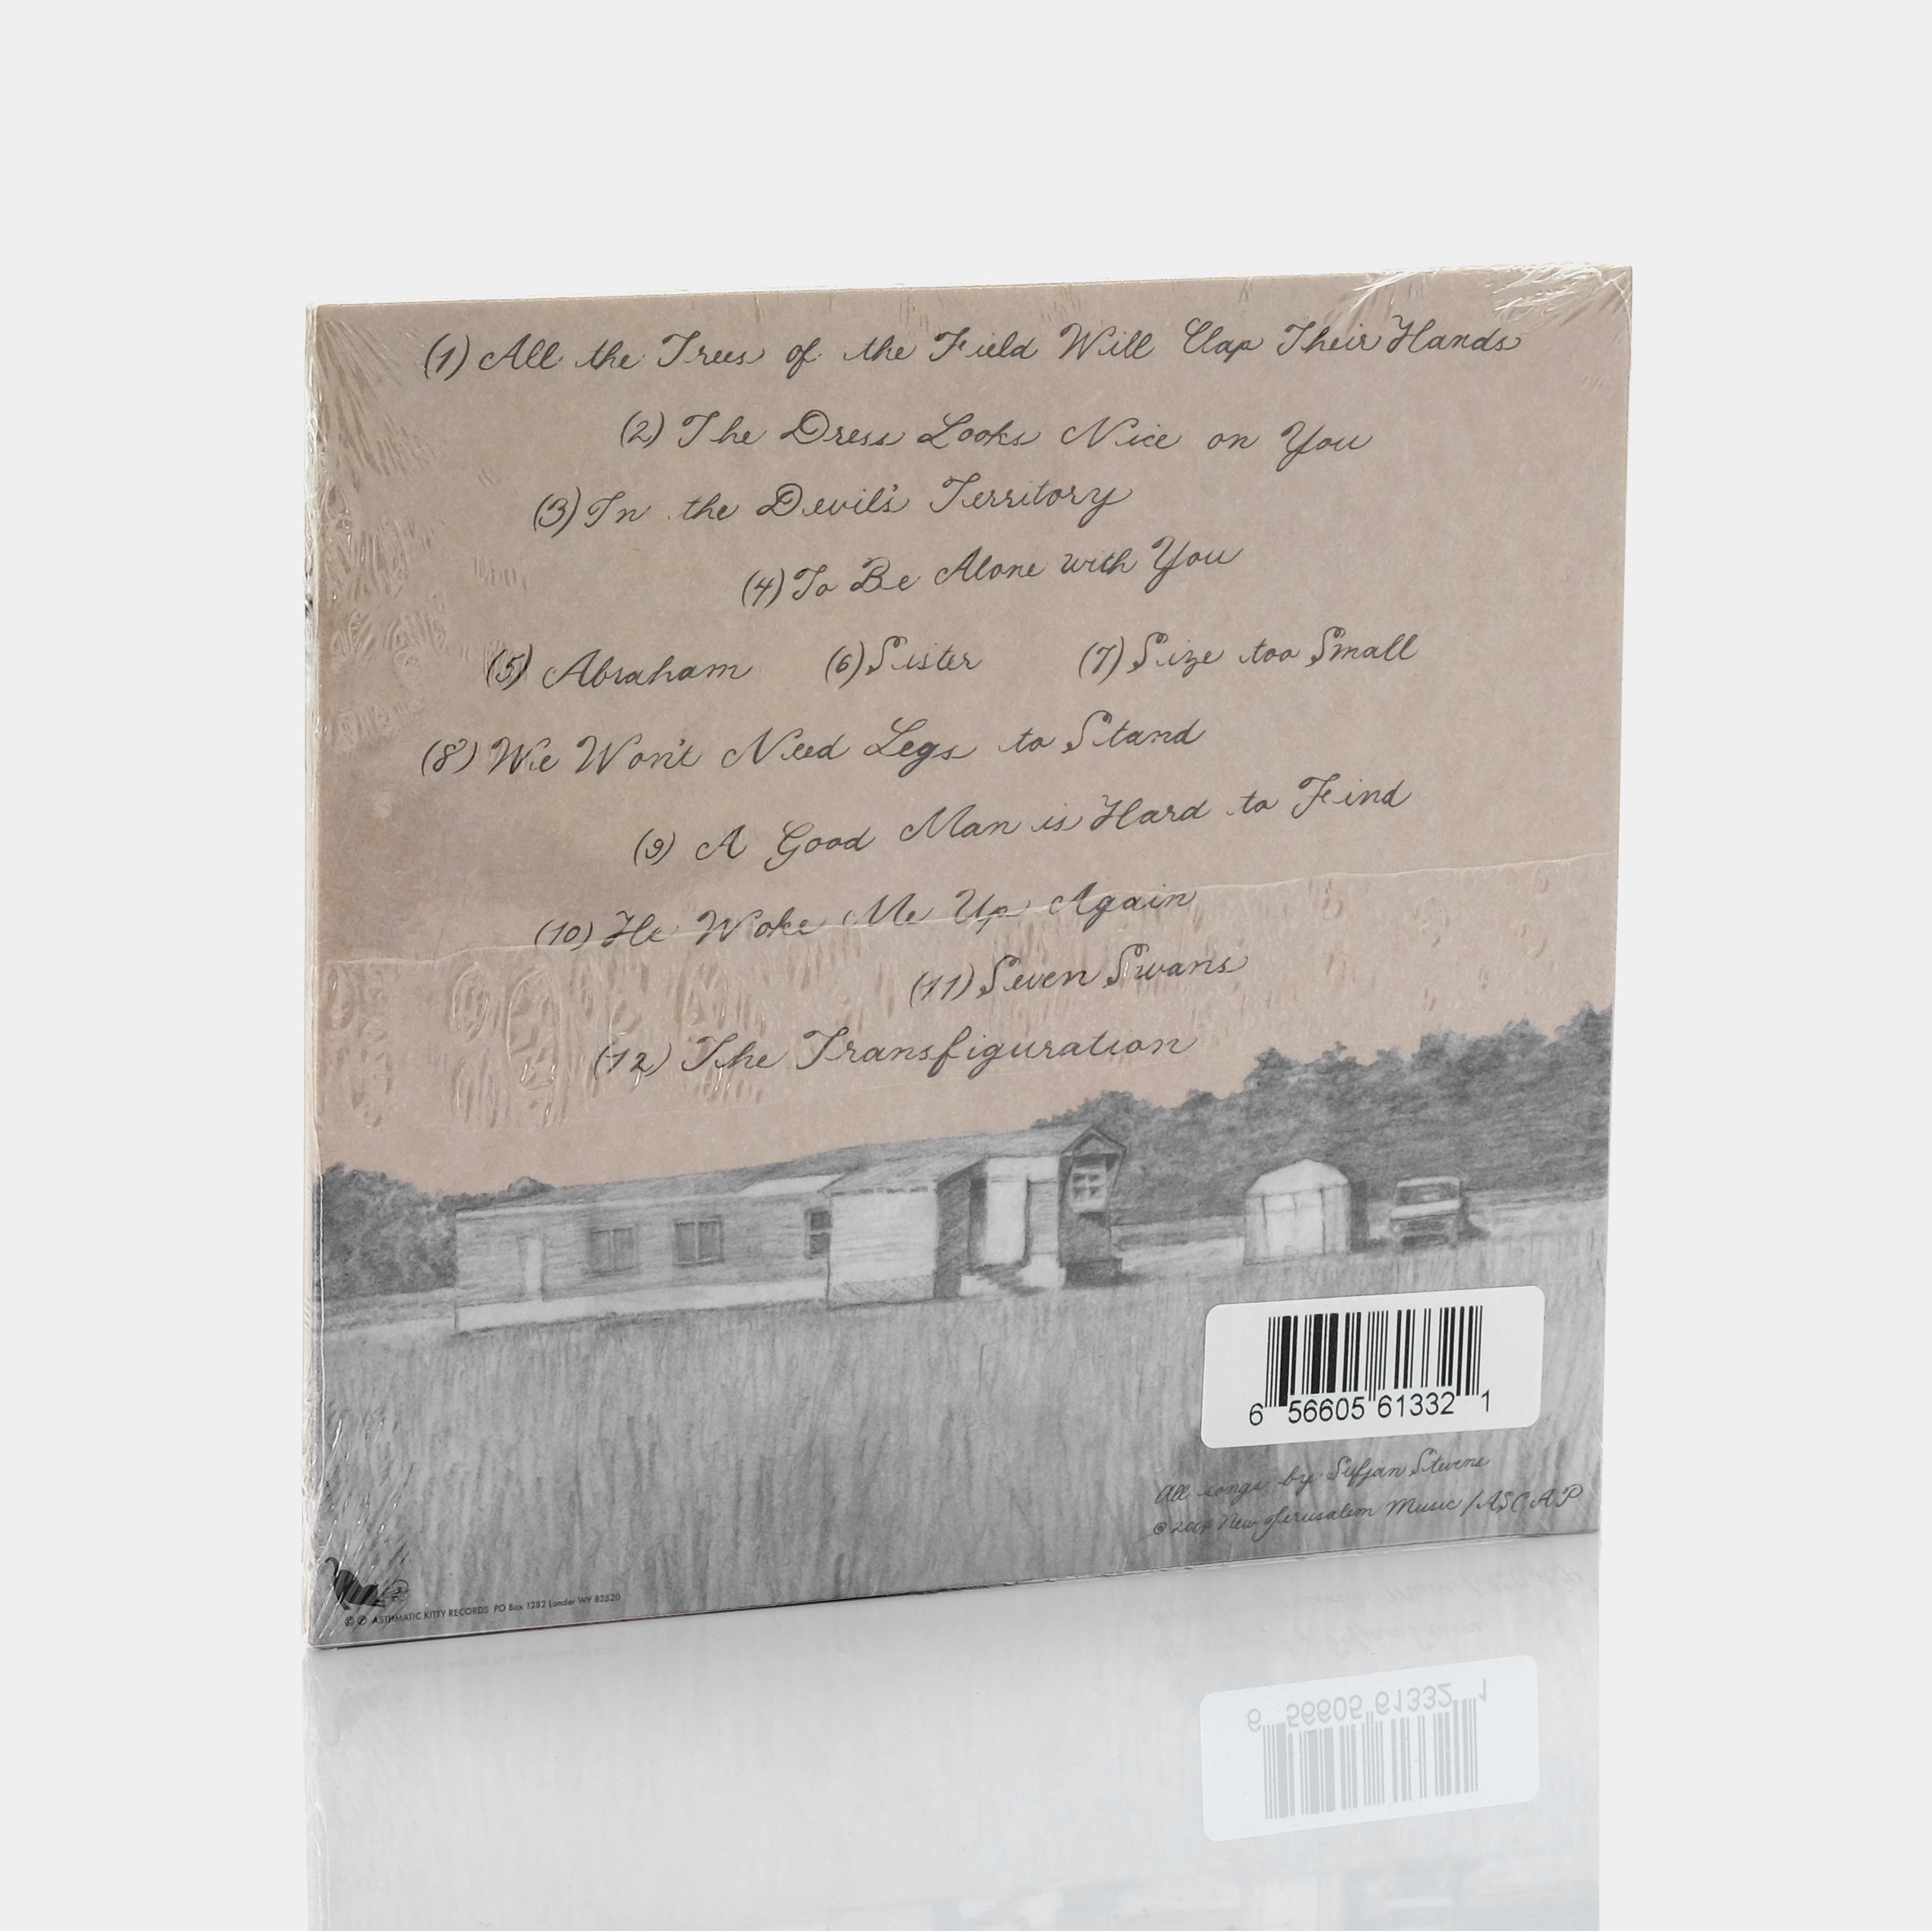 (1) All the Trees of the Field Will Clap Their Hands
(2) The Dress Looks Nice on You
(3) In the Devil's Territory
(4) To Be Alone with You
(5) Abraham (6) Sister (7) Size too Small
(8) We Won't Need Legs to Stand
(9) A Good Man is Hard to Find
(10) He Woke Me Up Again
(11) Seven Swans
(12) The Transfiguration
6 56605 61332 1
All songs by Sufjan Stevens
© 2004 New Jerusalem Music / ASCAP
© ℗ ASTHMATIC KITTY RECORDS PO Box 1282 Lander WY 82520